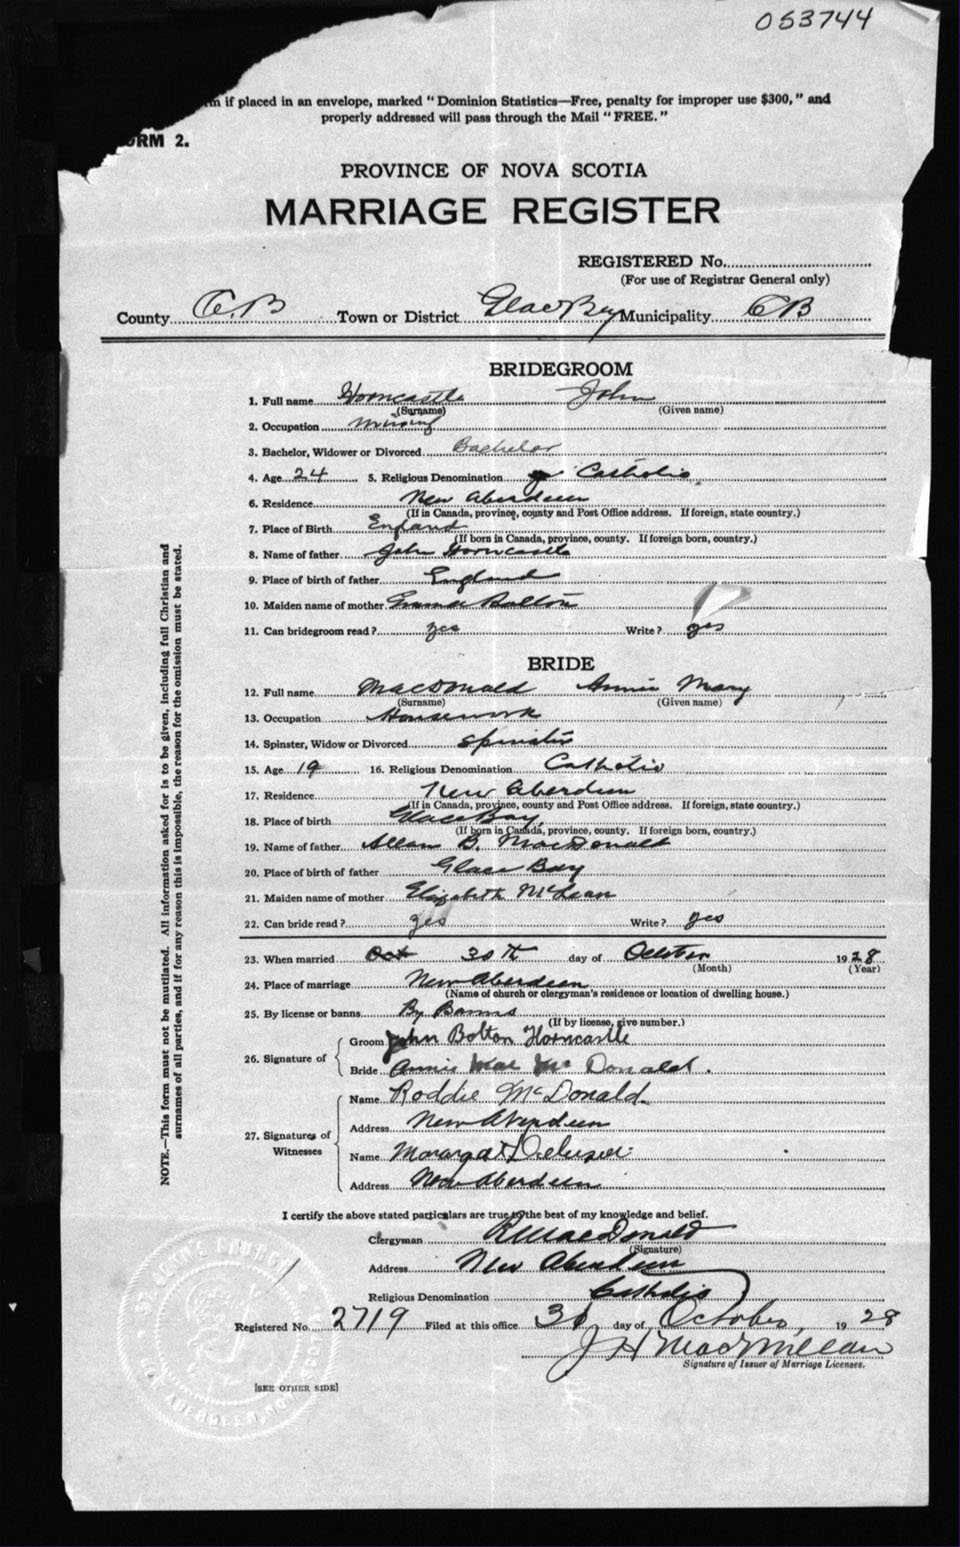 053744
m if placed in an envelope, marked "Dominion Statistics—Free, penalty for improper use $300," and
properly addressed will pass through the Mail "FREE."
ORM 2.
PROVINCE OF NOVA SCOTIA
MARRIAGE REGISTER
REGISTERED No.
(For use of Registrar General only)
County C.B Town or District Glace Bay Municipality CB
BRIDEGROOM
1. Full name Horncastle John
(Surname) (Given name)
2. Occupation Mining
3. Bachelor, Widower or Divorced Bachelor
4. Age 24 5. Religious Denomination Catholic
6. Residence New Aberdeen
(If in Canada, province, county and Post Office address. If foreign, state country.)
7. Place of Birth England
(If born in Canada, province, county. If foreign born, country.)
8. Name of father John Horncastle
9. Place of birth of father England
10. Maiden name of mother Emma Bolton
11. Can bridegroom read? yes Write? yes
BRIDE
12. Full name MacDonald Annie Mary
(Surname) (Given name)
13. Occupation Housework
14. Spinster, Widow or Divorced Spinster
15. Age 19 16. Religious Denomination Catholic
17. Residence New Aberdeen
(If in Canada, province, county and Post Office address. If foreign, state country.)
18. Place of birth Glace Bay
(If born in Canada, province, county. If foreign born, country.)
19. Name of father Allan B. MacDonald
20. Place of birth of father Glace Bay
21. Maiden name of mother Elizabeth McLean
22. Can bride read? yes Write? yes
23. When married Oct 30th day of October 1928
(Month) (Year)
24. Place of marriage New Aberdeen
(Name of church or clergyman's residence or location of dwelling house.)
25. By license or banns By Banns
(If by license, give number.)
26. Signature of
Groom John Bolton Horncastle
Bride Annie Mae Mc Donald.
27. Signatures of Witnesses
Name Roddie McDonald
Address New Aberdeen
Name Margaret
Address New Aberdeen
I certify the above stated particulars are true to the best of my knowledge and belief.
Clergyman R MacDonald
(Signature)
Address New Aberdeen
Religious Denomination Catholic
Registered No. 2719 Filed at this office 30 day of October, 1928
J H MacMillan
Signature of Issuer of Marriage Licenses.
[SEE OTHER SIDE]
NOTE.—This form must not be mutilated. All information asked for is to be given, including full Christian and
surnames of all parties, and if for any reason this is impossible, the reason for the omission must be stated.